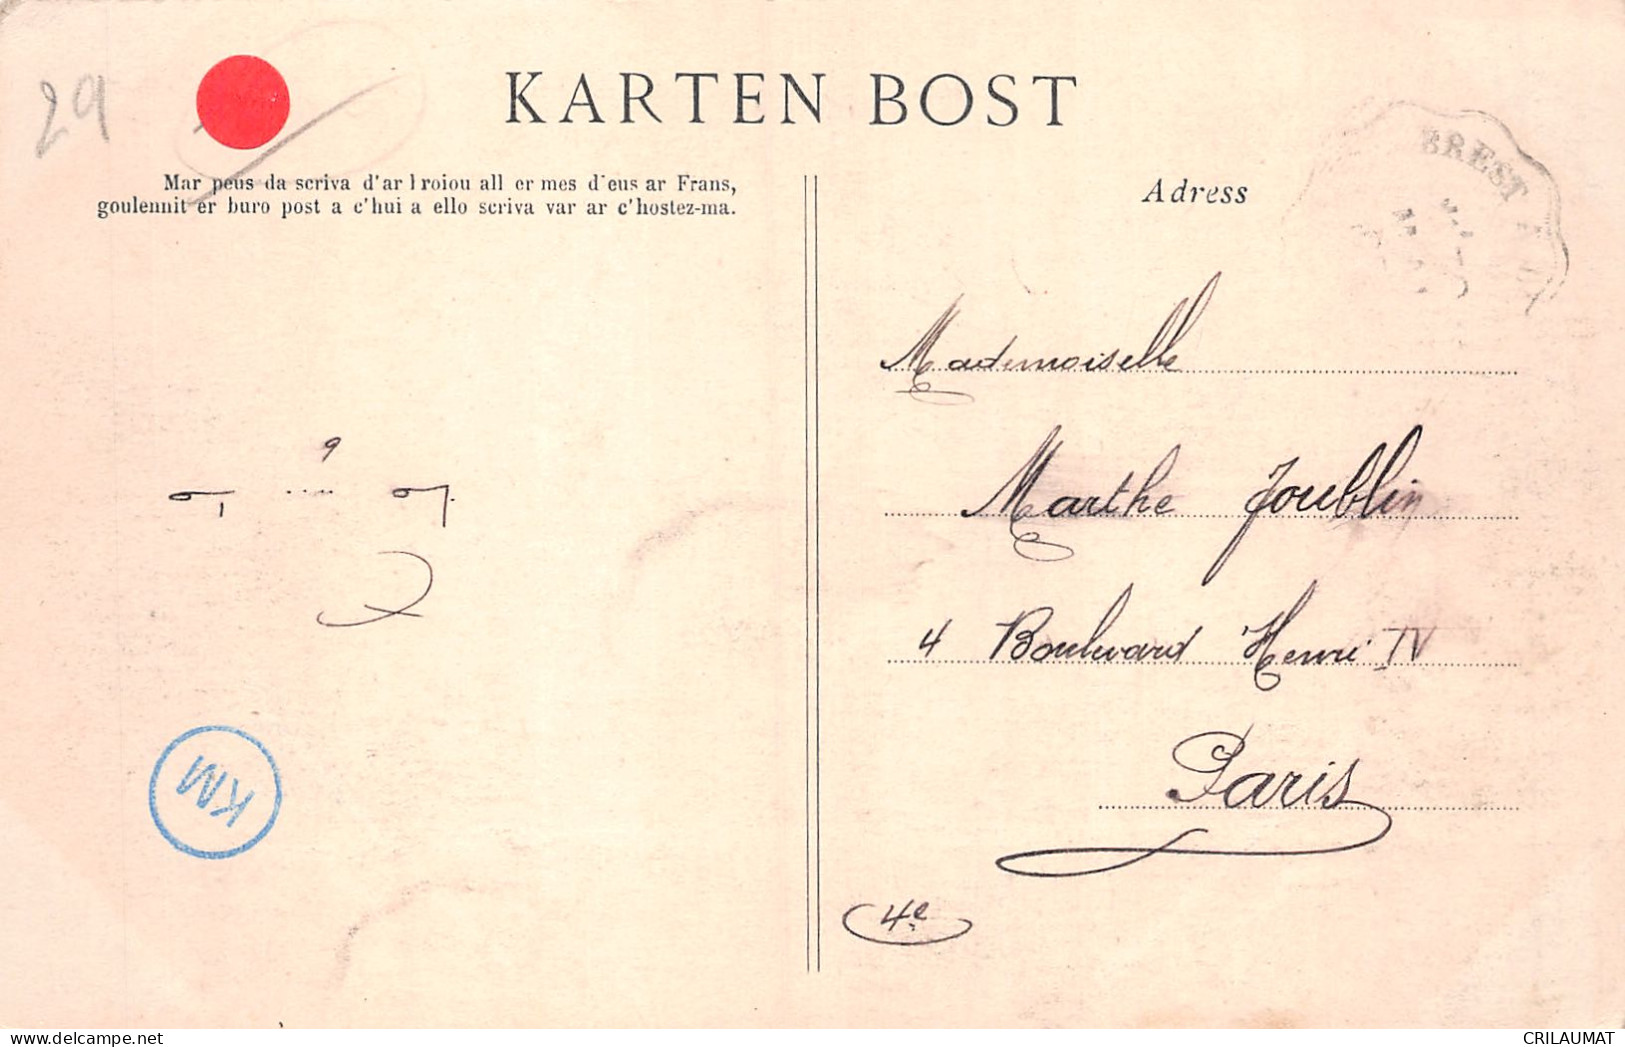 29
KARTEN BOST
Mar peus da scriva d'ar broiou all er mes d'eus ar Frans,
goulennit er buro post a c'hui a ello scriva var ar c'hostez-ma.
Adress
BREST
Mademoiselle
Marthe Joublin
4 Boulevard Henri IV
Paris
4e
KM
CRILAUMAT